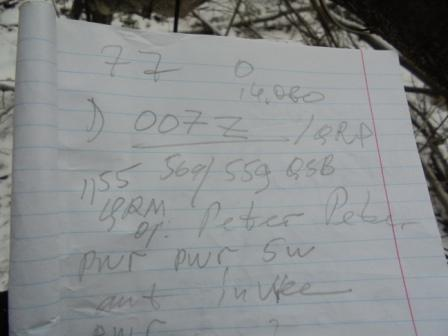 77 0
14.060
1) OO7Z /QRP
1155 569/559 QSB
QRM
op: Peter Peter
pwr pwr 5w
ant inv vee
pwr ?